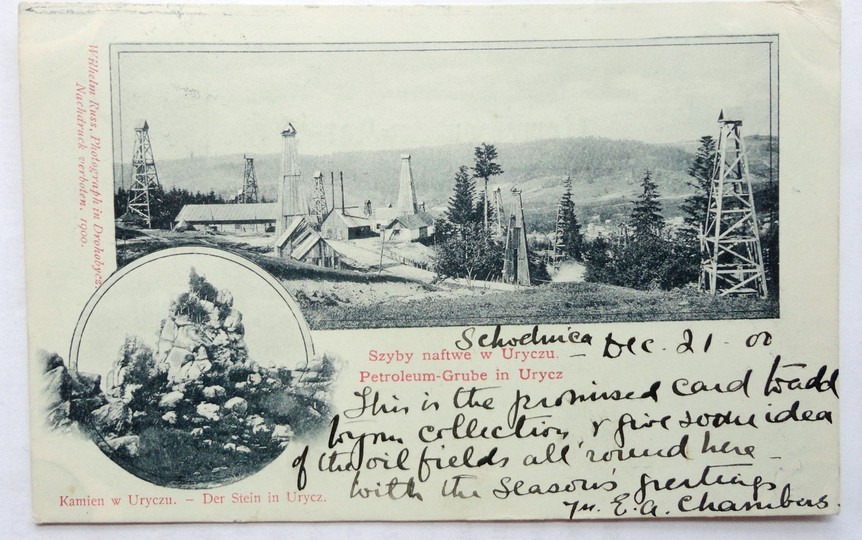 Wilhelm Russ, Photograph in Drohobycz.
Nachdruck verboten. 1900.
Schodnica Dec. 21 - 00
Szyby naftwe w Uryczu.
Petroleum-Grube in Urycz
This is the promised card to add
to your collection, & give some idea
of the oil fields all round here -
with the Season's greetings
E. A. Chambers.
Kamien w Uryczu. - Der Stein in Urycz.